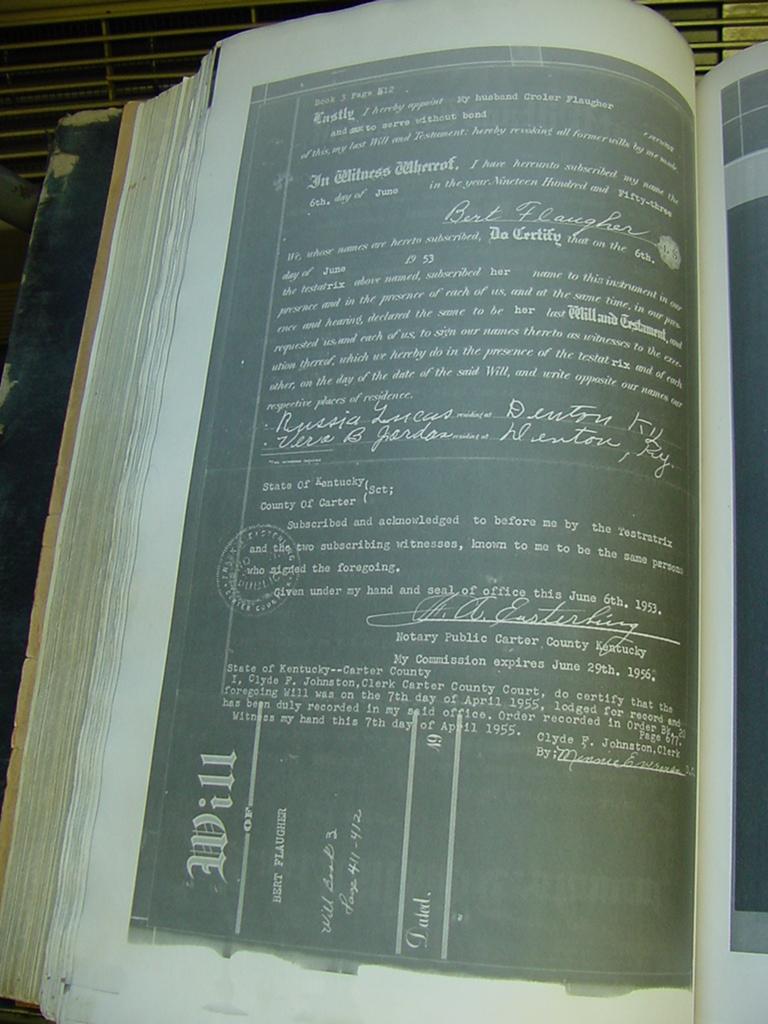 Book 3 Page 412
Lastly I hereby appoint My husband Croler Flaugher
and to serve without bond
of this, my last Will and Testament: hereby revoking all former wills by me made.
In Witness Whereof, I have hereunto subscribed my name the
6th. day of June in the year Nineteen Hundred and Fifty-three
Bert Flaugher
L S
We, whose names are hereto subscribed, Do Certify that on the 6th.
day of June 19 53
the testatrix above named, subscribed her name to this instrument in our
presence and in the presence of each of us, and at the same time, in our pres-
ence and hearing, declared the same to be her last Will and Testament, and
requested us, and each of us, to sign our names thereto as witnesses to the exe-
ution thereof, which we hereby do in the presence of the testatrix and of each
other, on the day of the date of the said Will, and write opposite our names our
respective places of residence.
Russia Lucas residing at Denton Ky
Vera B Jordan residing at Denton, Ky.
State Of Kentucky(
Sct;
County Of Carter (
Subscribed and acknowledged to before me by the Testratrix
and the two subscribing witnesses, known to me to be the same persons
who signed the foregoing.
Given under my hand and seal of office this June 6th. 1953.
Notary Public Carter County Kentucky
My Commission expires June 29th. 1956.
State of Kentucky--Carter County
I, Clyde F. Johnston,Clerk Carter County Court, do certify that the
foregoing Will was on the 7th day of April 1955, lodged for record and
has been duly recorded in my said office. Order recorded in Order Bk. 20
Page 677.
Witness my hand this 7th day of April 1955.
Clyde F. Johnston,Clerk
By; Minnie Everman D.C.
Will
OF
BERT FLAUGHER
Will Book 3
Page 411-412
Dated, 19